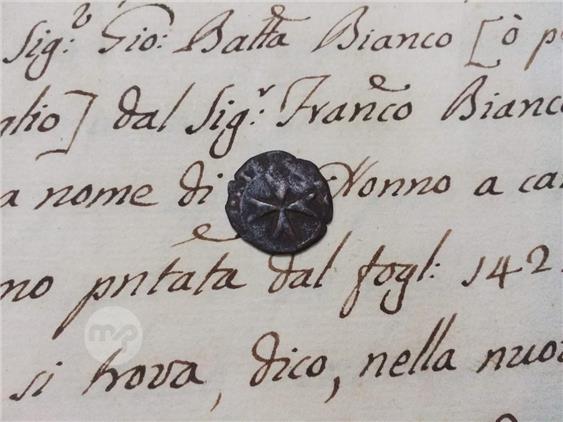 Sig:r Gio: Batta Bianco [ò p
glio] dal Sig:r Franco Bianco
a nome di Nonno a ca
no pntata dal fogl: 142
si trova, dico, nella nuo
mp